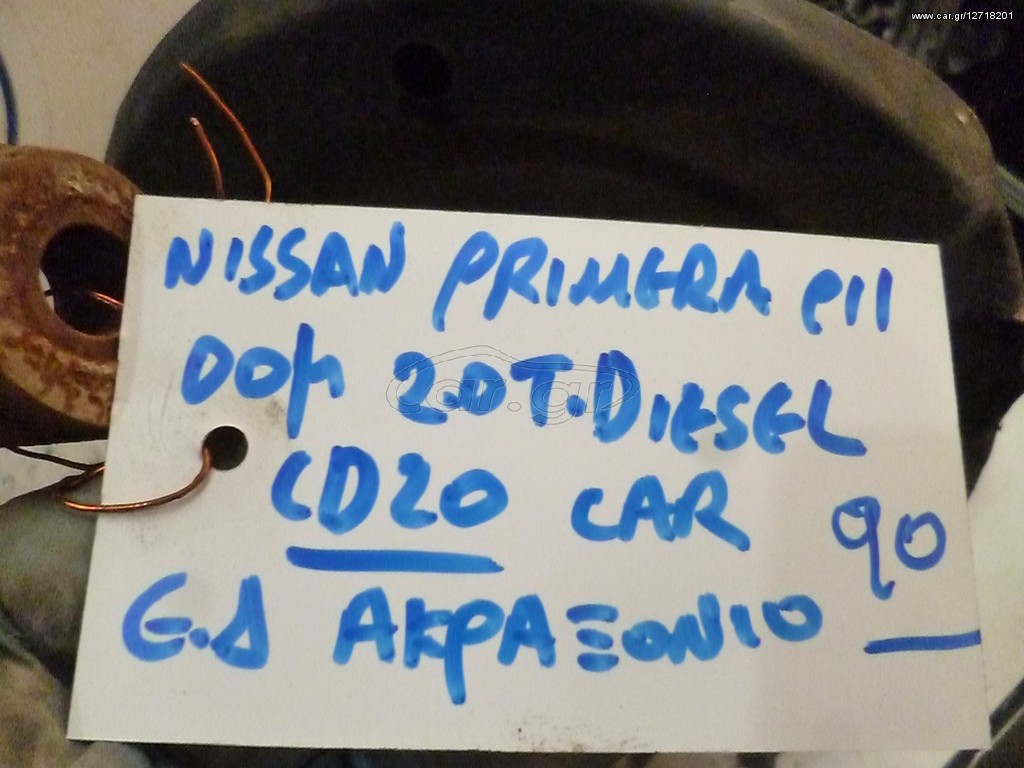 www.car.gr/12718201
NISSAN PRIMERA P11
00μ 2.0 T.DIESEL
car.gr
CD20 CAR
90
Ε.Δ ΑΚΡΑΞΟΝΙΟ